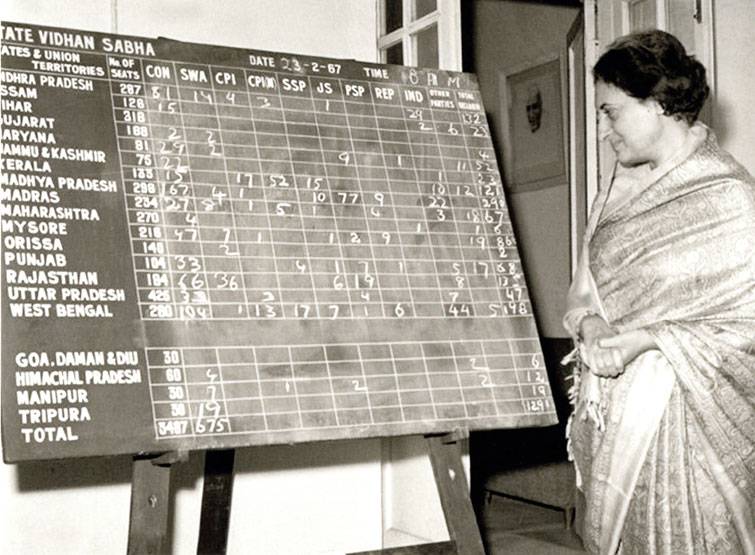 TATE VIDHAN SABHA
DATE 23-2-67 TIME 8 A M
TATES & UNION TERRITORIES No. OF SEATS CON SWA CPI CPI(M) SSP JS PSP REP IND OTHER PARTIES TOTAL
NDHRA PRADESH 287 51 14 4 3 1
SSAM 126 15 29 132
IHAR 318 2 6 23
UJARAT 168 2 2
ARYANA 81 29 2 4
AMMU & KASHMIR 75 22 9 1
KERALA 133 15 17 52 15
MADHYA PRADESH 296 167 4 1 10 77 9 10 12
MADRAS 234 27 8 1 5 1 22
MAHARASHTRA 270 4 3 18 67
MYSORE 216 47 7 1 1 2 9 1
ORISSA 140 2 19
PUNJAB 104 33 4 1 7 1 2
RAJASTHAN 184 36 6 19 5 17 68
UTTAR PRADESH 425 2 4 7 47
WEST BENGAL 280 104 1 13 17 7 1 6 44 5 198
GOA, DAMAN & DIU 30 6
HIMACHAL PRADESH 60 4 2 12
MANIPUR 30 7 1 2 2 19
TRIPURA 30 19 1291
TOTAL 3487 675